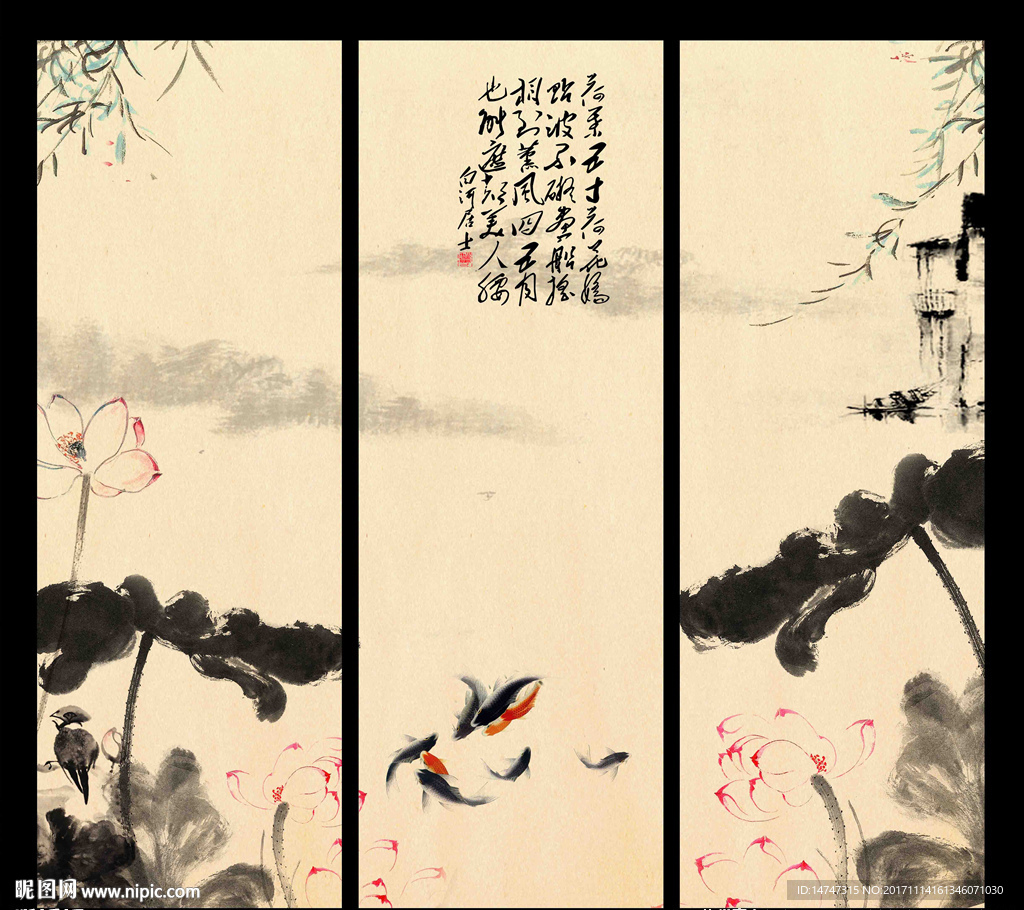 荷葉五寸荷花嬌
貼波不礙畫船搖
相到薰風四五月
也能遮却美人腰
白河居士
昵图网 www.nipic.com
ID:14747315 NO:20171114161346071030